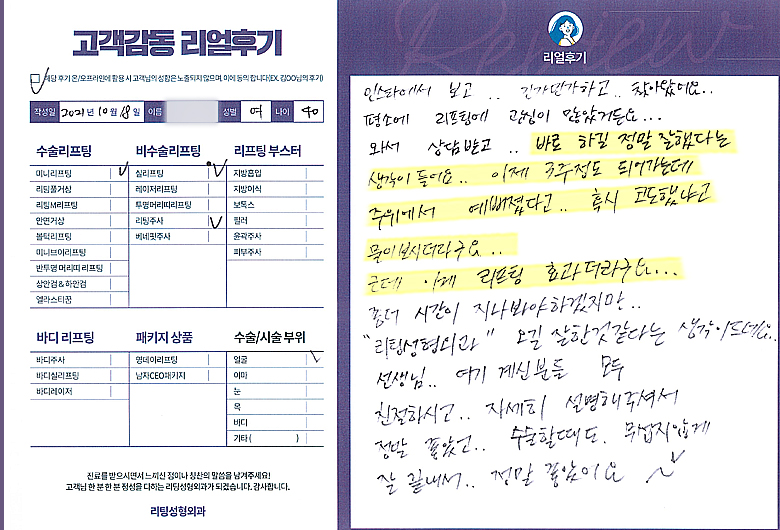 고객감동 리얼후기
해당 후기 온/오프라인에 활용 시 고객님의 성함은 노출되지 않으며, 이에 동의 합니다(EX. 김OO님의 후기)
작성일 2021년 10월 18일 이름 성별 여 나이 40
수술리프팅
미니리프팅
리팅풀거상
리팅M리프팅
안면거상
볼턱리프팅
미니브이리프팅
반투명 머리띠 리프팅
상안검 & 하안검
엘라스티꿈
비수술리프팅
실리프팅
레이저리프팅
투명머리띠리프팅
리팅주사
베네핏주사
리프팅 부스터
지방흡입
지방이식
보톡스
필러
윤곽주사
피부주사
바디 리프팅
바디주사
바디실리프팅
바디레이저
패키지 상품
영데이리프팅
남자CEO패키지
수술/시술 부위
얼굴
이마
눈
목
바디
기타 ( )
진료를 받으시면서 느끼신 점이나 칭찬의 말씀을 남겨주세요!
고객님 한 분 한 분 정성을 다하는 리팅성형외과가 되겠습니다. 감사합니다.
리팅성형외과
Review
리얼후기
인스타에서 보고.. 긴가민가하고.. 찾아왔어요..
평소에 리프팅에 관심이 많았거든요...
와서 상담받고.. 바로 하길 정말 잘했다는
생각이 들어요.. 이제 3주정도 되어가는데
주위에서 예뻐졌다고.. 혹시 고도했냐고
물어보시더라구요..
근데 이게 리프팅 효과더라구요...
좀더 시간이 지나봐야하겠지만..
"리팅성형외과" 오길 잘한것 같다는 생각이드네요..
선생님.. 여기 계신분들 모두
친절하시고.. 자세히 설명해주셔서
정말 좋았고.. 수술할때도 무섭지않게
잘 끝내서.. 정말 좋았어요